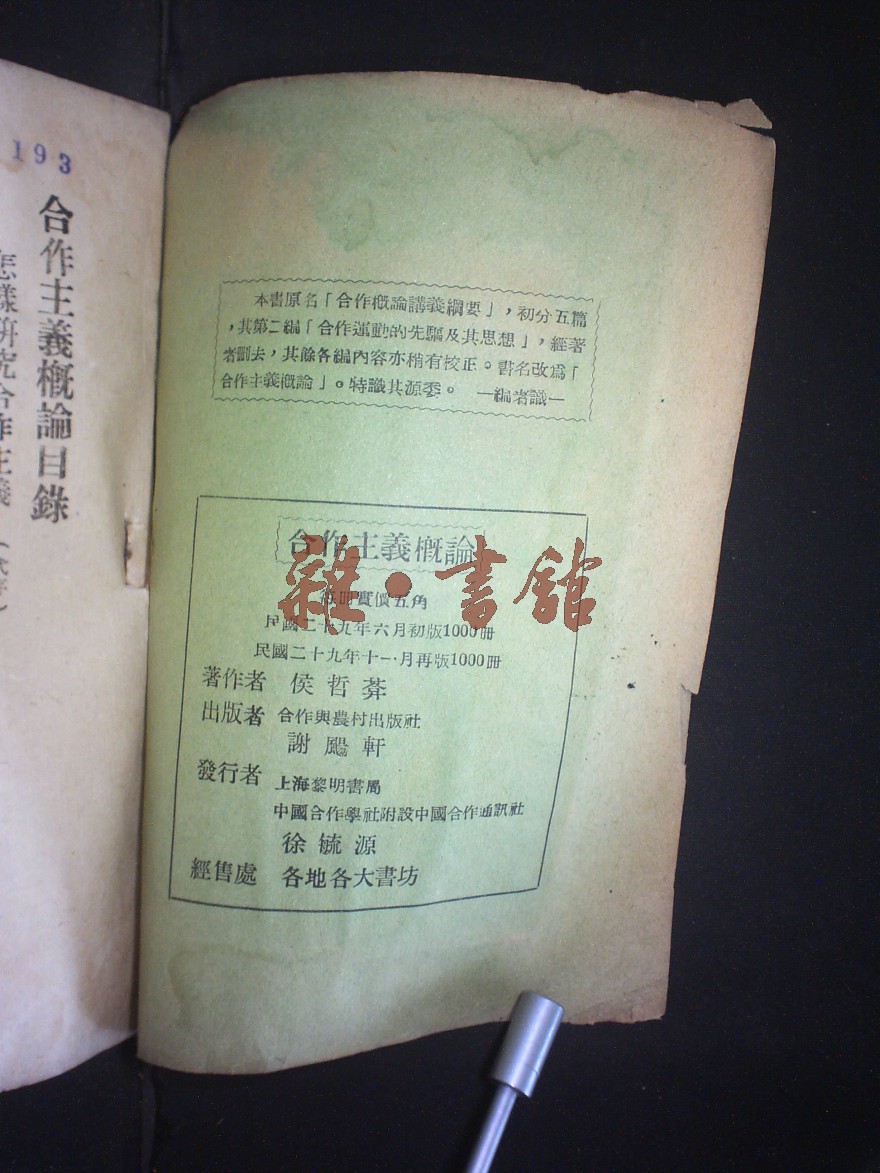 193
合作主義概論目錄
怎樣研究合作主義
本書原名「合作概論講義綱要」，初分五篇
，其第二編「合作運動的先驅及其思想」，經著
者劃去，其餘各編內容亦稍有校正。書名改爲「
合作主義概論」。特識其源委。 —編者識—
合作主義概論
每冊實價五角
民國二十九年六月初版1000冊
民國二十九年十一月再版1000冊
著作者 侯哲葊
出版者 合作與農村出版社
謝颺軒
發行者 上海黎明書局
中國合作學社附設中國合作通訊社
徐毓源
經售處 各地各大書坊
雜·書館